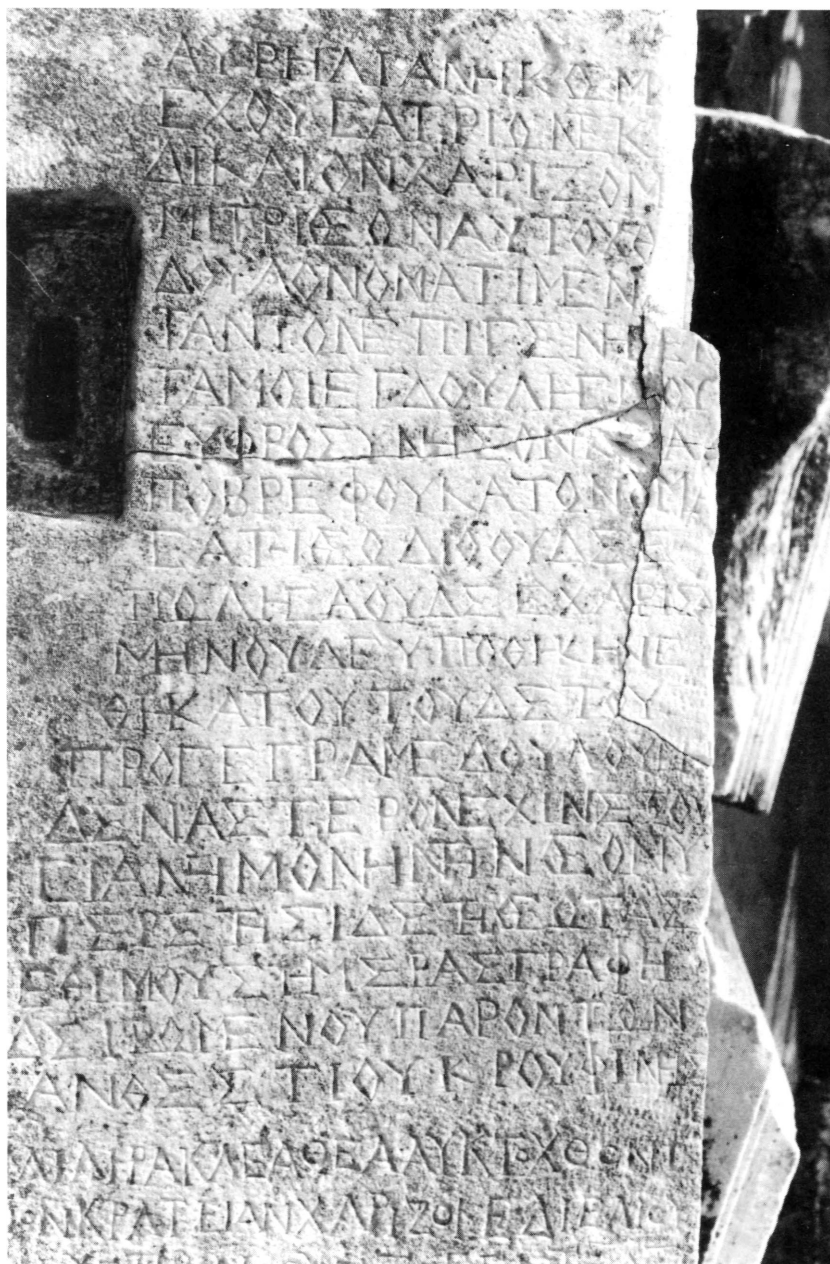 ΑΥΡΗΛΙΑΝΗΚΟΣΜ
ΕΧΟΥΣΑΤΡΙΩΝΕΚ
ΔΙΚΑΙΟΝΧΑΡΙΖΟΜ
ΜΙΤΡΙΘΕΩΝΑΥΤΟΧΘ
ΔΟΥΛΟΝΟΜΑΤΙΜΕΝ
ΤΑΝΤΟΝΕΠΙΓΕΝΗΘΕΝ
ΤΑΜΟΙΕΓΔΟΥΛΗΣΜΟΥ
ΕΥΦΡΟΣΥΝΗΣΟΝΚΑ
ΠΟΒΡΕΦΟΥΚΑΤΟΝΟΜΑ
ΣΑΤΗΘΕΩΔΙΟΟΥΔΕΕ
ΠΩΛΗΣΑΟΥΔΕΕΧΑΡΙΣ
ΜΗΝΟΥΔΕΥΠΟΘΗΚΗΝΕ
ΘΗΚΑΤΟΥΤΟΥΔΕΤΟΥ
ΠΡΟΓΕΓΡΑΜΕΔΟΥΛΟΥΜ
ΔΕΝΑΣΤΕΡΟΝΕΧΙΝΕΞΟΥ
ΣΙΑΝΗΜΟΝΗΝΗΝΘΕΟΝΥ
ΠΕΡΕΤΗΣΙΔΕΤΗΘΕΩΤΑΣ
ΕΘΙΜΟΥΣΗΜΕΡΑΣΓΡΑΦΗ
ΔΕΙΩΜΕΝΟΥΠΑΡΟΝΤΩΝ
ΑΝΘΕΣΤΙΟΥΚΡΟΥΦΙΝΗ
ΑΙΛΗΡΑΚΛΕΑΘΕΑΑΥΚΤΟΧΘΟΝΙ
ΟΝΚΡΑΤΕΙΑΝΧΑΡΙΖΟΓΕΔΙΡΛΙΟ